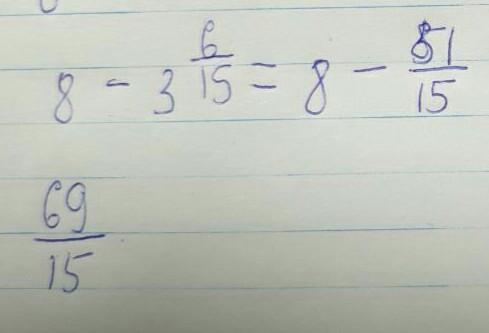 8 - 3 6/15 = 8 - 51/15
69/15